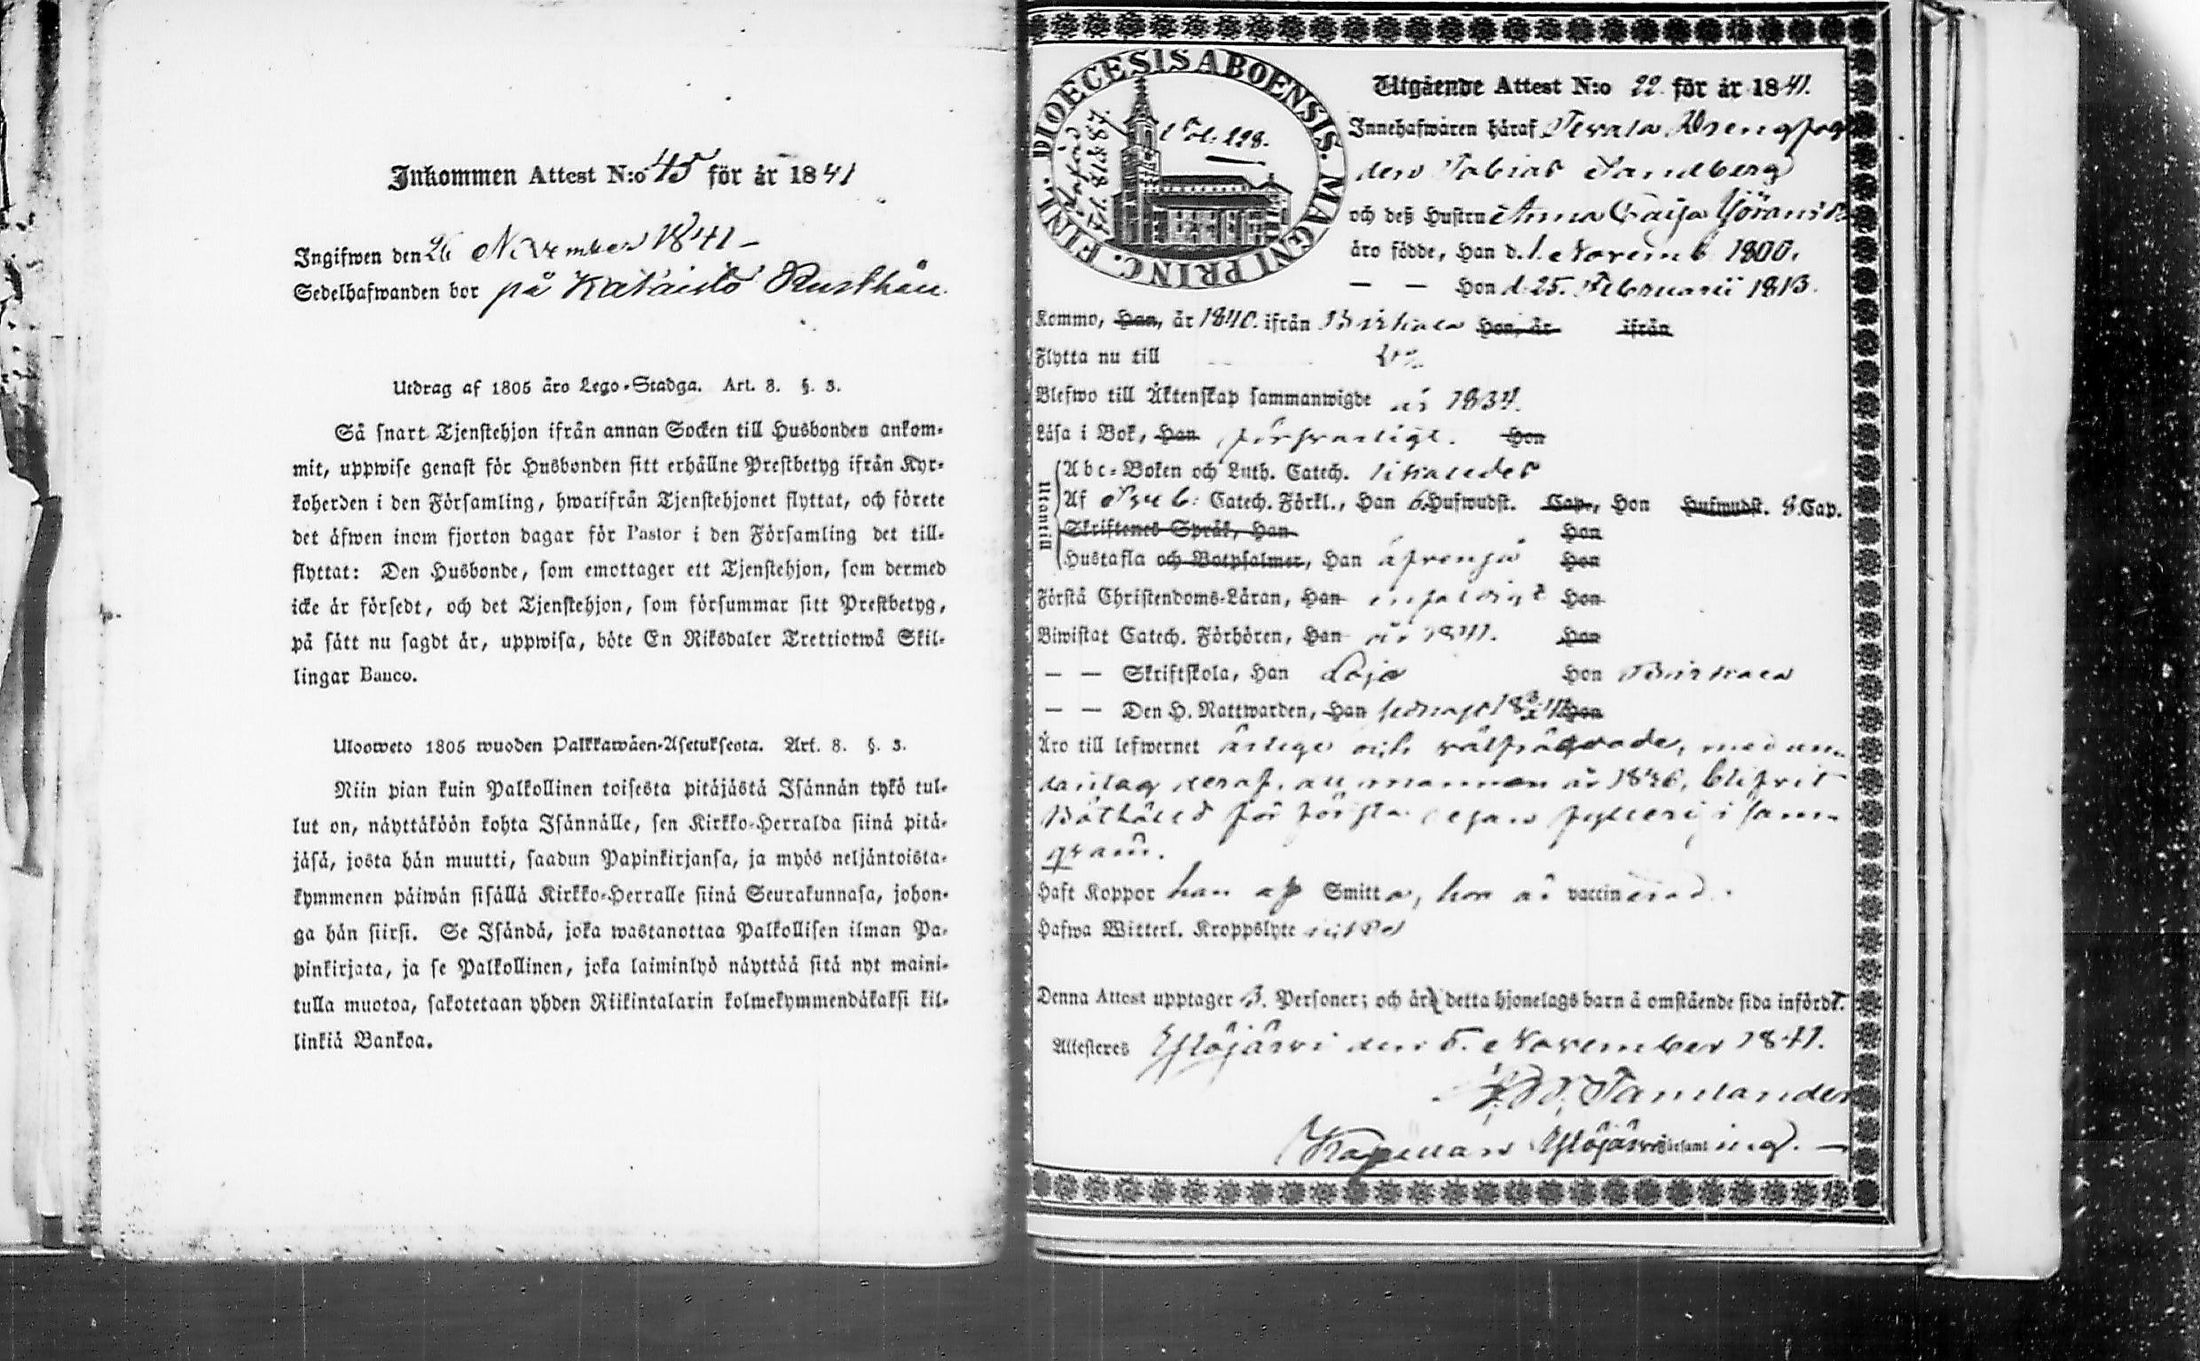 Inkommen Attest N:o 45 för år 1841
Ingifwen den 26 November 1841 –
Sedelhafwanden bor på Kataisto Rusthåll
Utdrag af 1805 års Lego-Stadga. Art. 8. §. 3.
Så snart Tjenstehjon ifrån annan Socken till Husbonden ankom-
mit, uppwise genast för Husbonden sitt erhållne Prestbetyg ifrån Kyr-
koherden i den Församling, hwarifrån Tjenstehjonet flyttat, och förete
det äfwen inom fjorton dagar för Pastor i den Församling det till-
flyttat: Den Husbonde, som emottager ett Tjenstehjon, som dermed
icke är försedt, och det Tjenstehjon, som försummar sitt Prestbetyg,
på sätt nu sagdt är, uppwisa, böte En Riksdaler Trettiotwå Skil-
lingar Banco.
Uloosweto 1805 wuoden Palkkawäen-Asetuksesta. Art. 8. §. 3.
Niin pian kuin Palkollinen toisesta pitäjästä Isännän tykö tul-
lut on, näyttäköön kohta Isännälle, sen Kirkko-Herralda siinä pitä-
jäsä, josta hän muutti, saadun Papinkirjansa, ja myös neljäntoista-
kymmenen päiwän sisällä Kirkko-Herralle siinä Seurakunnasa, johon-
ga hän siirsi. Se Isändä, joka wastanottaa Palkollisen ilman Pa-
pinkirjata, ja se Palkollinen, joka laiminlyö näyttää sitä nyt maini-
tulla muotoa, sakotetaan yhden Riikintalarin kolmekymmendäkaksi kil-
linkiä Bankoa.
DIOECESIS ABOENSIS. MAGNI PRINC. FINL.
Fol. 128.
Utgående Attest N:o 22 för år 1841.
Innehafwaren häraf
den Tobias Sandberg
och deß Hustru Anna Caisa
äro födde, Han d. 1. Novemb. 1800.
— — Hon d. 25. Februarii 1813.
Kommo, Han, år 1840. ifrån Birkala Hon, år ifrån
Flytta nu till
Blefwo till Äktenskap sammanwigde år 1834.
Läsa i Bok, Han försvarligt. Hon
Utantill
Abc-Boken och Luth. Catech. likaledes
Af Catech. Förkl., Han 6. Hufwudst. Cap., Hon Hufwudst. 8. Cap.
Skriftenes Språk, Han Hon
Hustafla och Botpsalmer, Han Hon
Förstå Christendoms-Läran, Han enfaldigt Hon
Biwistat Catech. Förhören, Han år 1841. Hon
— — Skriftskola, Han Lojo Hon Birkala
— — Den H. Nattwarden, Han sednast Hon
Äro till lefwernet ärlige och välfrägdade, med un-
dantag deraf, att mannen år 1836, blifvit
bötfälld för första resan fylleri i sam-
qväm.
Haft Koppor han af Smitta, hon är vaccinerad.
Hafwa Witterl. Kroppslyte
Denna Attest upptager 3. Personer; och är detta hjonelags barn å omstående sida infördt.
Attesteres Ylöjärvi den 5. November 1841.
Tamlander
Kapellan Ylöjärvi